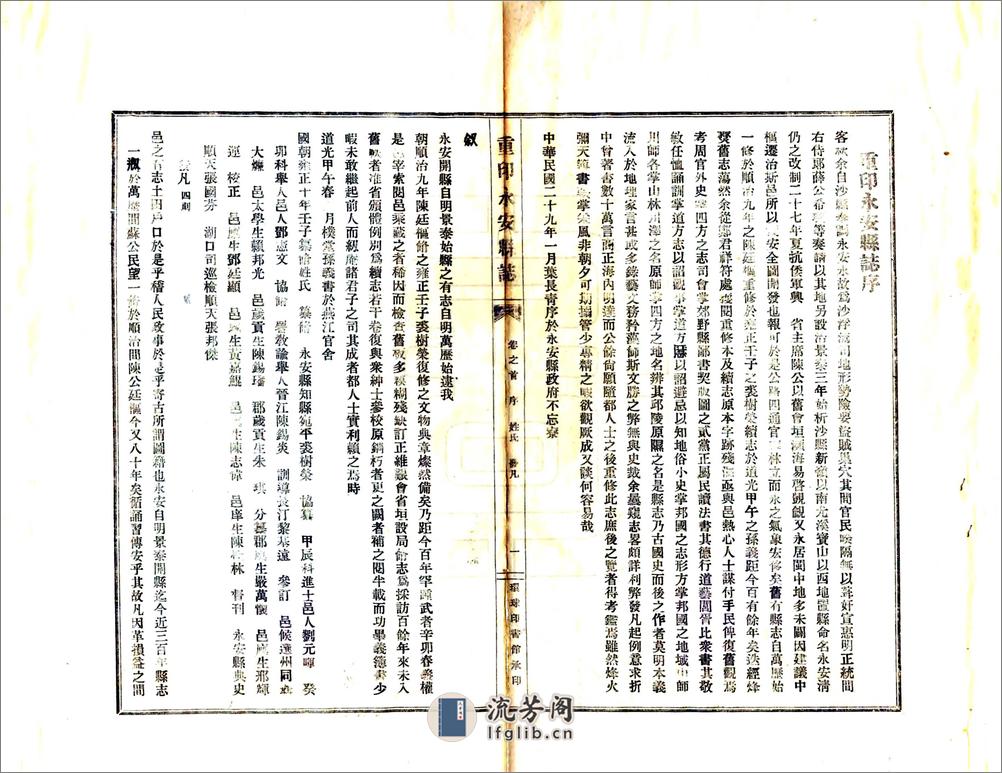 重印永安縣誌序
右侍郎薛公希璉等奏請以其地另設治景泰三年始析沙縣新嶺以南尤溪寶山以西地置縣命名永安清
仍之改制二十七年夏抗倭軍興　省主席陳公以舊會垣瀕海易啓覬覦又永居閩中地多未闢因建議中
樞遷治斯邑所以安全圖開發也
一修於順治九年之陳廷樞重修於雍正壬子之裘樹榮續志於道光甲午之孫義距今百有餘年矣迭經烽
燹舊志蕩然余從鄭君祥符處獲閱重修本及續志原本字跡殘 亟與邑熱心人士謀付手民俾復舊觀焉
考周官外史掌四方之志司會掌郊野縣鄙書契版圖之貳黨正屬民讀法書其德行道藝閭胥比衆書其敬
敏任恤誦訓掌道方志以詔觀事掌道方慝以詔避忌以知地俗小史掌邦國之志形方掌邦國之地域山師
川師各掌山林川澤之名原師掌四方之地名辨其邱陵原隰之名是縣志乃古國史而後之作者莫明本義
流入於地理家言甚或多錄藝文務矜藻飾斯文勝之弊無與史裁余曩窺志畧頗詳利弊發凡起例意求折
中曾著書數十萬言商正海內明達而公餘尙願隨都人士之後重修此志庶後之覽者得考鑑焉雖然烽火
彌天 非朝夕可期搦管少專精之暇欲觀厥成又談何容易哉
中華民國二十九年一月葉長青序於永安縣政府不忘寮
重印永安縣誌
卷之首　序　姓氏　發凡
一
環球印書館承印
敘
永安開縣自明景泰始縣之有志自明萬歷始逮我
朝順治九年陳廷樞修之雍正壬子裘樹榮復修之文物典章燦然備矣乃距今百年
是邑宰索閱邑乘藏之者稀因而檢查舊板多模糊殘缺訂正維艱會省垣設局修志爲採訪百餘年來未入
舊 者准省頒體例別爲續志若干卷復與衆紳士參校原編朽者更之闕者補之閱半載而功舉義簿書少
暇未敢繼起前人而經庵諸君子之司其成者都人士實利賴之焉時
道光甲午春　月樸堂孫義書於燕江官舍
國朝雍正十年壬子纂修姓氏　纂修　永安縣知縣宛平裘樹榮　協纂　甲辰科進士邑人劉元暉　癸
卯科舉人邑人鄧憲文　協修　署敎諭舉人晉江陳錫炎　訓導長汀黎基遠　參訂　邑候選州同
大 　邑太學生賴邦光　邑歲貢生陳錫璠　郡歲貢生朱　琪　分 郡 生嚴萬 　邑庠生邢輝
逕　校正　邑庠生鄧廷顯　邑庠生黃嘉鯤　邑 生陳志 　邑庠生陳桂林　督刊　永安縣典史
順天張國芬　湖口司巡檢順天張邦傑
發凡　四則
邑之有志土田戶口於是乎稽人民政事於是乎寄古所謂圖籍也永安自明景泰開縣迄今近三百年縣志
一 於萬歷間蘇公民望一修於順治間陳公廷樞今又八十年矣循誦習傳安乎其故凡因革損益之間
流芳阁
lfglib.cn